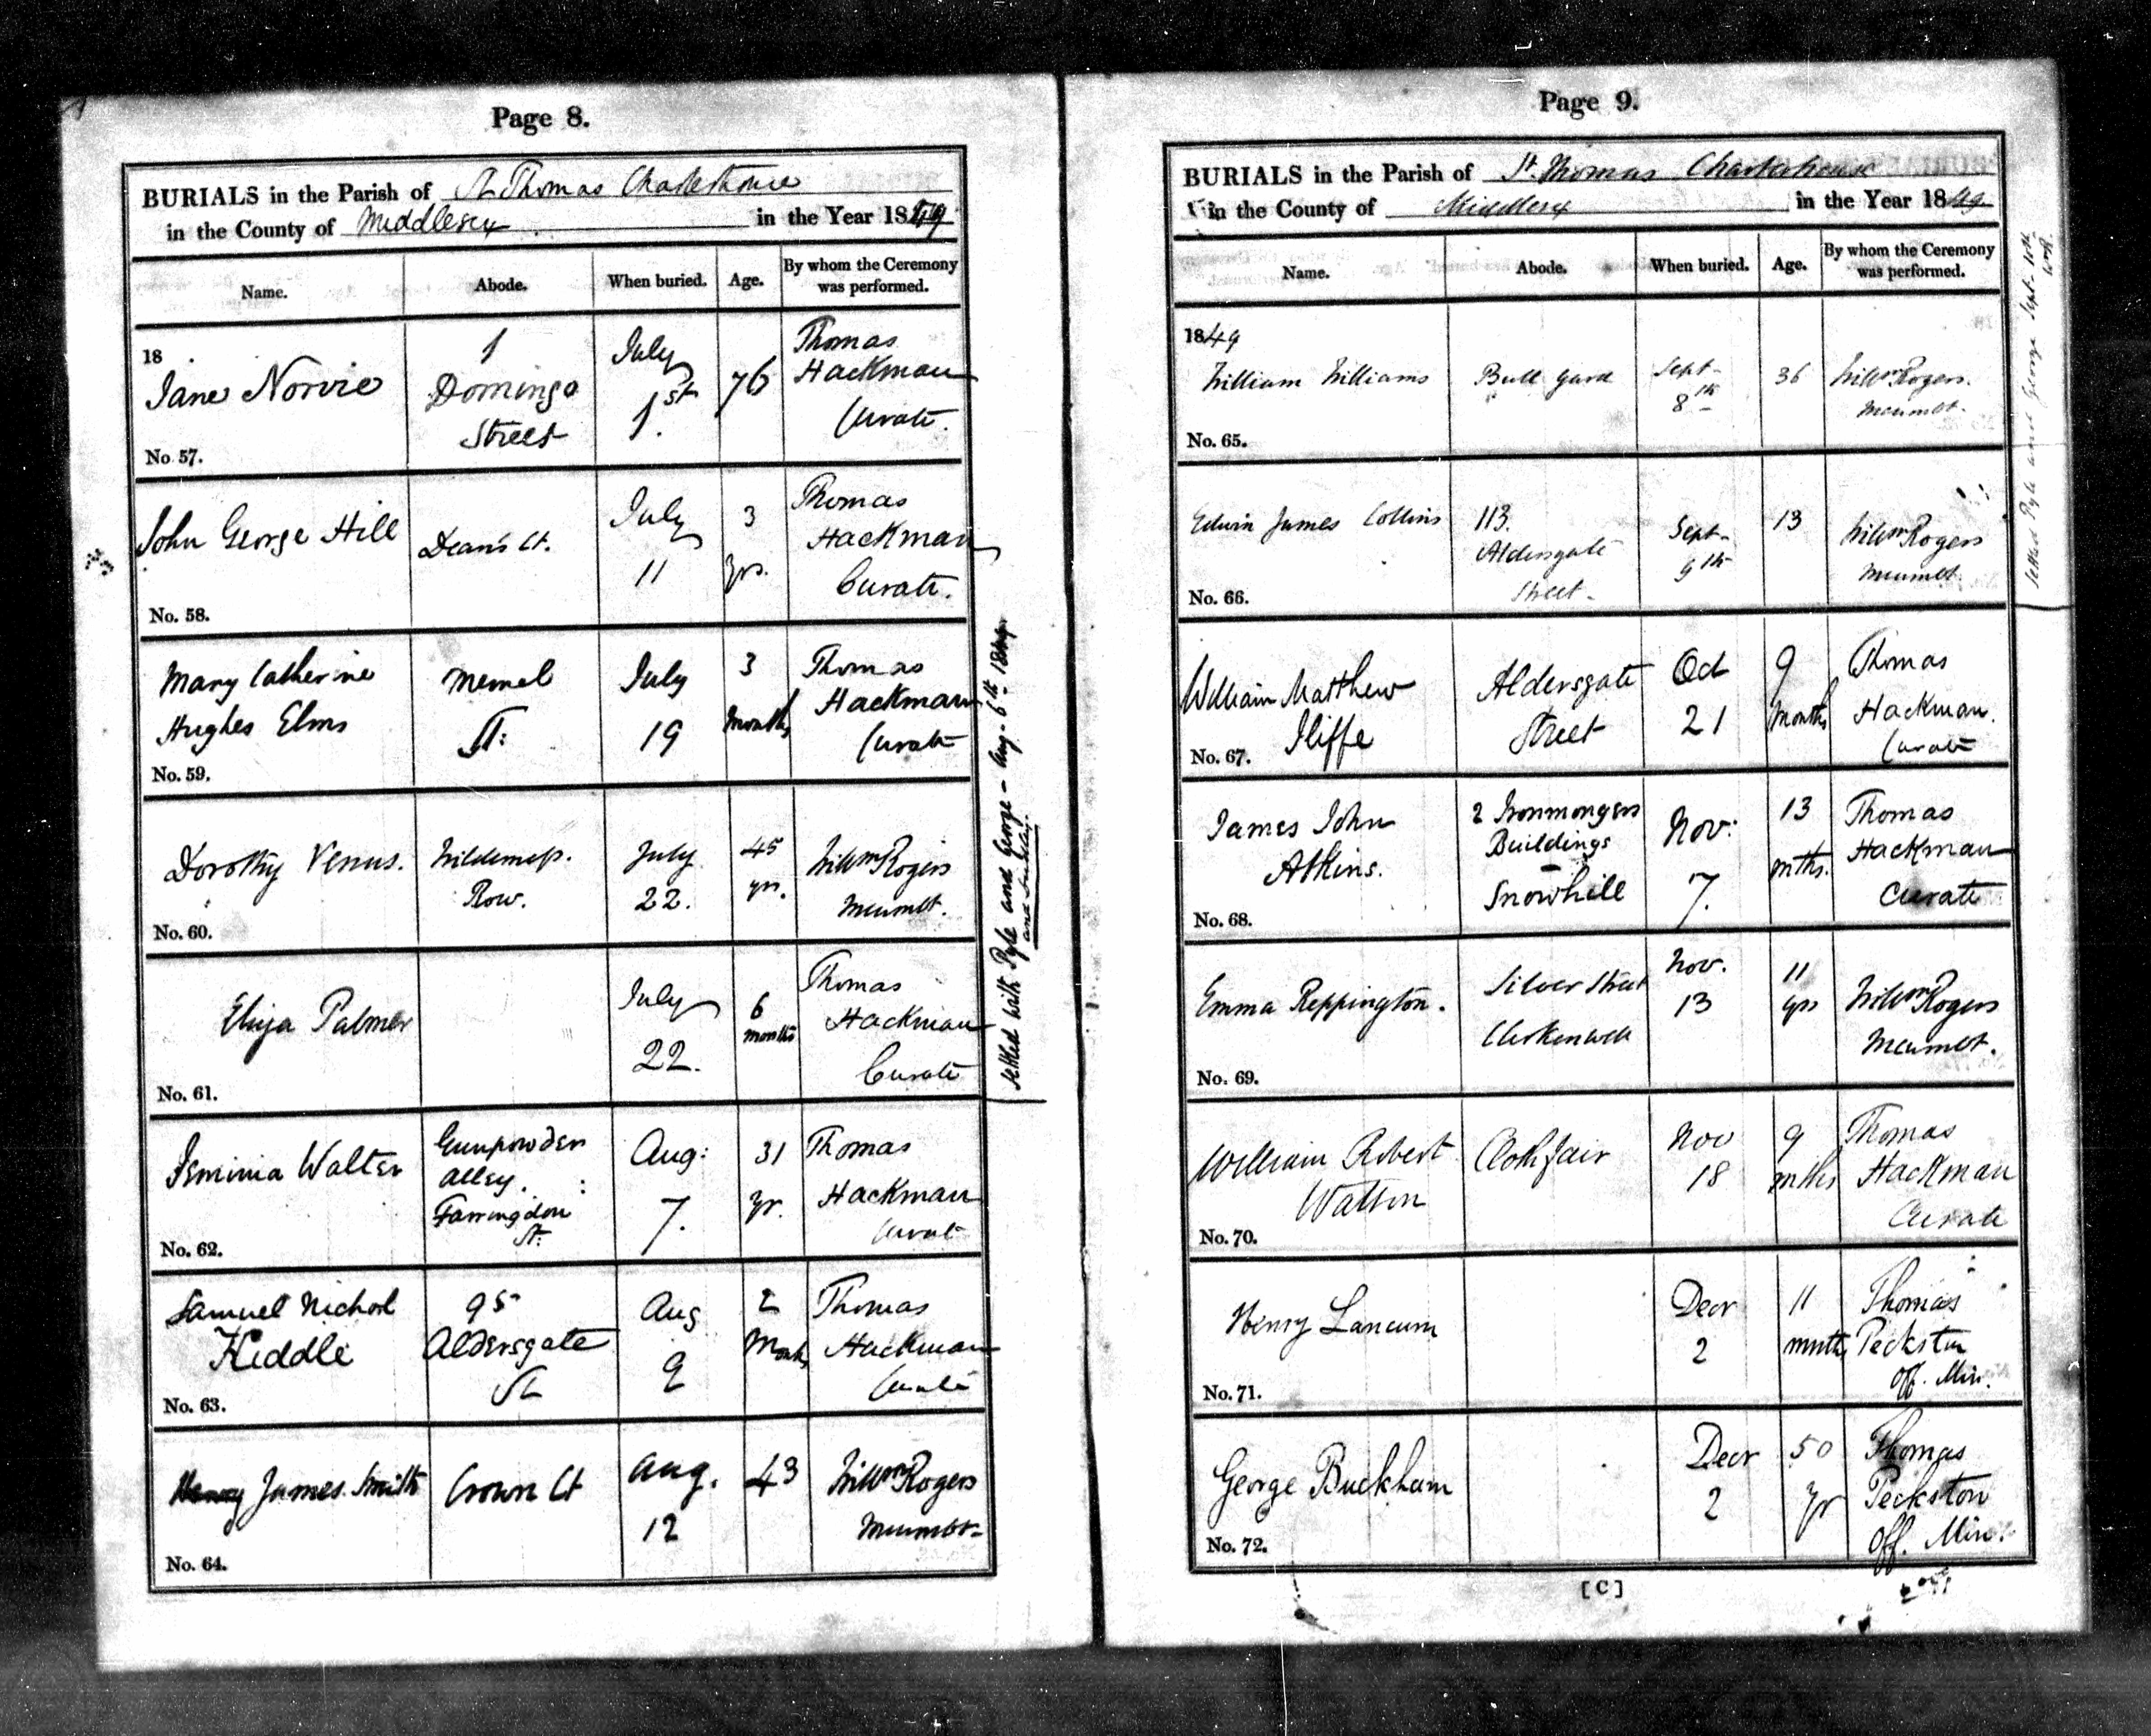 Page 8.
BURIALS in the Parish of St Thomas Charterhouse
in the County of Middlesex in the Year 1849
Name. Abode. When buried. Age. By whom the Ceremony was performed.
18
Jane Norvie
No 57.
1
Domingo
Street
July
1st.
76
Thomas
Hackman
Curate.
John George Hill
No. 58.
Dean's Ct.
July
11
3
yrs.
Thomas
Hackman
Curate.
Mary Catherine
Hughes Elms
No. 59.
Memel
St:
July
19
3
Months
Thomas
Hackman
Curate
Dorothy Venus.
No. 60.
Wilderness.
Row.
July
22.
45
yrs.
Willm Rogers
Incumbt.
Eliza Palmer
No. 61.
July
22.
6
months
Thomas
Hackman
Curate
Jeminia Walter
No. 62.
Gunpowder
Alley.
Farringdon
St:
Aug:
7.
31
yr.
Thomas
Hackman
Curate
Samuel Nichol
Kiddle
No. 63.
95
Aldersgate
St
Aug
9
2
Months
Thomas
Hackman
Curate
James Smith
No. 64.
Crown Ct
Aug.
12
43
Willm Rogers
Incumbt
Settled with Pyle and George - Aug. 6th 1849.
Page 9.
BURIALS in the Parish of St. Thomas Charterhouse
in the County of Middlesex in the Year 1849
Name. Abode. When buried. Age. By whom the Ceremony was performed.
1849
William Williams
No. 65.
Bull Yard
Sept
8th
36
Willm Rogers.
Incumbt.
Edwin James Collins
No. 66.
113.
Aldersgate
Street.
Sept
9th
13
Willm Rogers
Incumbt.
William Matthew
Iliffe
No. 67.
Aldersgate
Street
Oct
21
9
Months
Thomas
Hackman.
Curate
James John
Atkins.
No. 68.
2 Ironmongers
Buildings
Snowhill
Nov:
7.
13
mths.
Thomas
Hackman
Curate
Emma Reppington.
No. 69.
Silver Street
Clerkenwell
Nov.
13
11
yrs
Willm Rogers
Incumbt.
William Robert
Watson
No. 70.
Cloth fair
Nov
18
9
mths
Thomas
Hackman
Curate
Henry Lancum
No. 71.
Decr
2
11
mnths
Thomas
Peckston
Off. Min.
George Buckham
No. 72.
Decr
2
50
yr
Thomas
Peckston
Off. Min.
Settled Pyle and George Sept. 10th
[C]